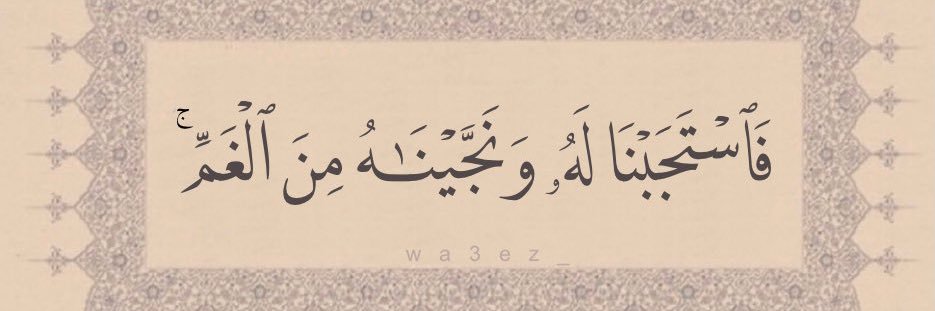 فَٱسْتَجَبْنَا لَهُۥ وَنَجَّيْنَـٰهُ مِنَ ٱلْغَمِّ ۚ
wa3ez_